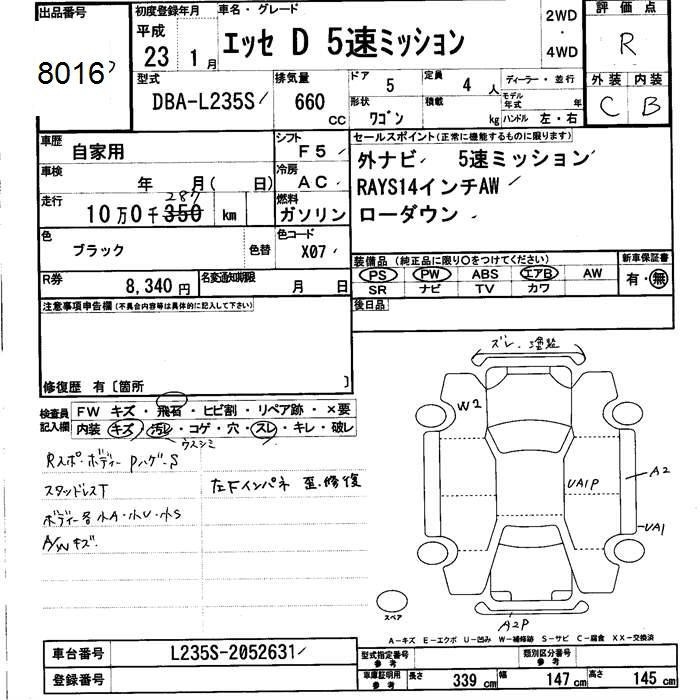 出品番号
8016
初度登録年月
平成
23 1月
車名・グレード
エッセ D 5速ミッション
2WD
・
4WD
評価点
R
外装 内装
C B
型式
DBA-L235S
排気量
660
CC
ドア 5
定員 4 人
形状 ワゴン
積載 kg
ディーラー・並行
モデル年式 年
ハンドル 左・右
車歴
自家用
シフト
F5
車検
年 月( 日)
冷房
AC
走行
10万0千350 km
287
燃料
ガソリン
色
ブラック
色替
色コード
X07
R券
8,340 円
名変通知期限
月 日
セールスポイント(正常に機能するものに限ります)
外ナビ 5速ミッション
RAYS14インチAW
ローダウン
装備品(純正品に限り○をつけてください)
PS PW ABS エアB AW
SR ナビ TV カワ
新車保証書
有・無
後日品
注意事項申告欄(不具合内容等は具体的に記入して下さい)
修復歴 有〔箇所 〕
検査員
記入欄
FW キズ・飛石・ヒビ割・リペア跡・×要
内装 キズ・汚レ・コゲ・穴・スレ・キレ・破レ
ウスシミ
Rスポ・ボディー Pハゲ・S
スタッドレスT
左Fインパネ 歪・修復
ボディー各小A・小U・小S
A/Wキズ
ズレ・塗装
W2
A2
UA1P
UA1
A2P
スペア
A-キズ E-エクボ U-凹み W-補修跡 S-サビ C-腐食 XX-交換済
車台番号
L235S-2052631
登録番号
型式指定番号
参考
類別区分番号
参考
車庫証明用
参考
長さ 339 cm 幅 147 cm 高さ 145 cm